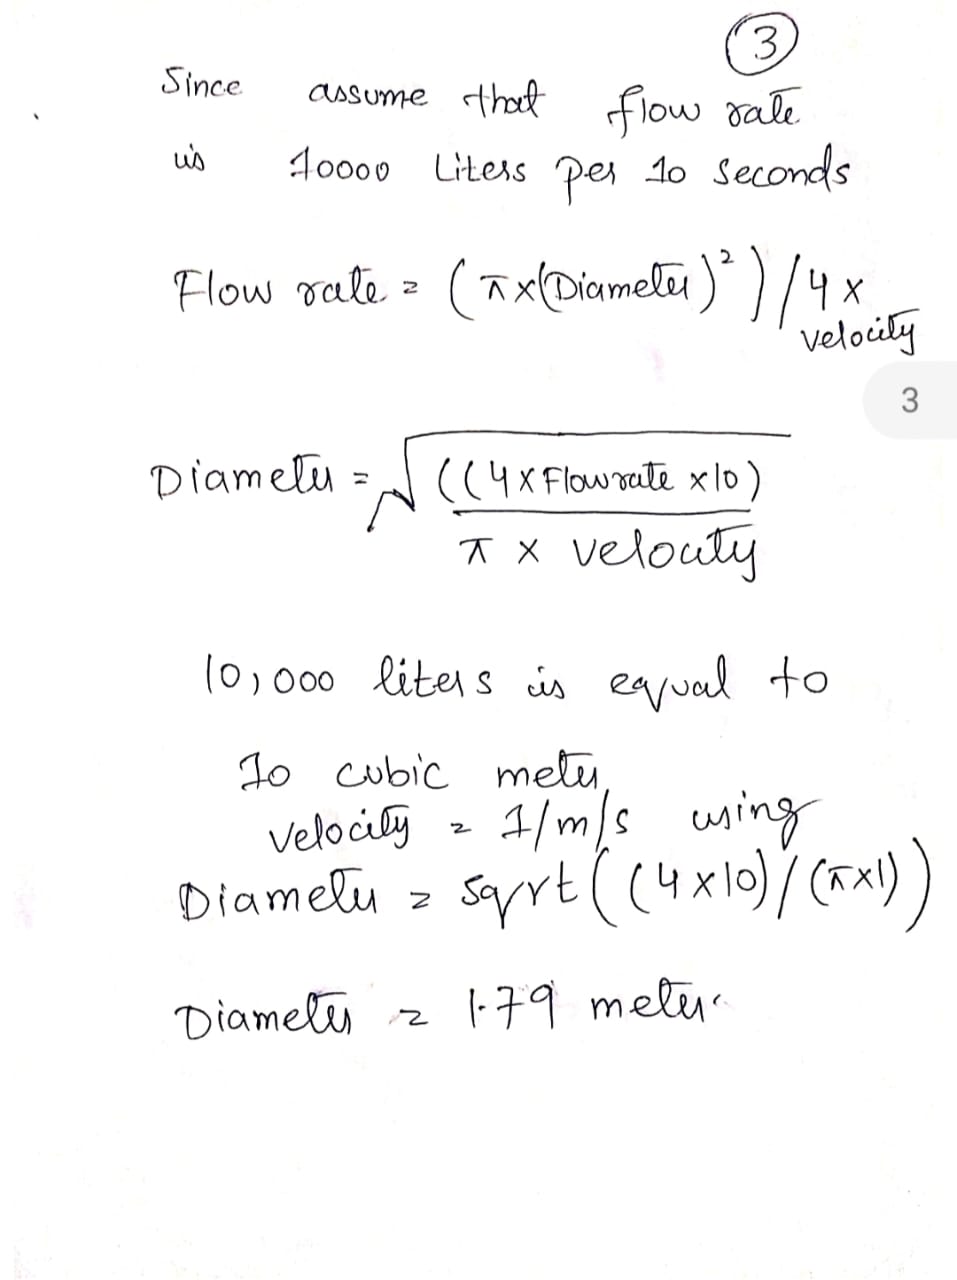 3
Since assume that flow rate
is 10000 Liters per 10 seconds
Flow rate = (π x(Diameter)²)/4 x
velocity
3
Diameter = √((4 x Flowrate x10)
π x velocity
10,000 liters is equal to
10 cubic meter
velocity = 1/m/s using
Diameter = sqrt((4x10)/(πx1))
Diameter = 1.79 meter.